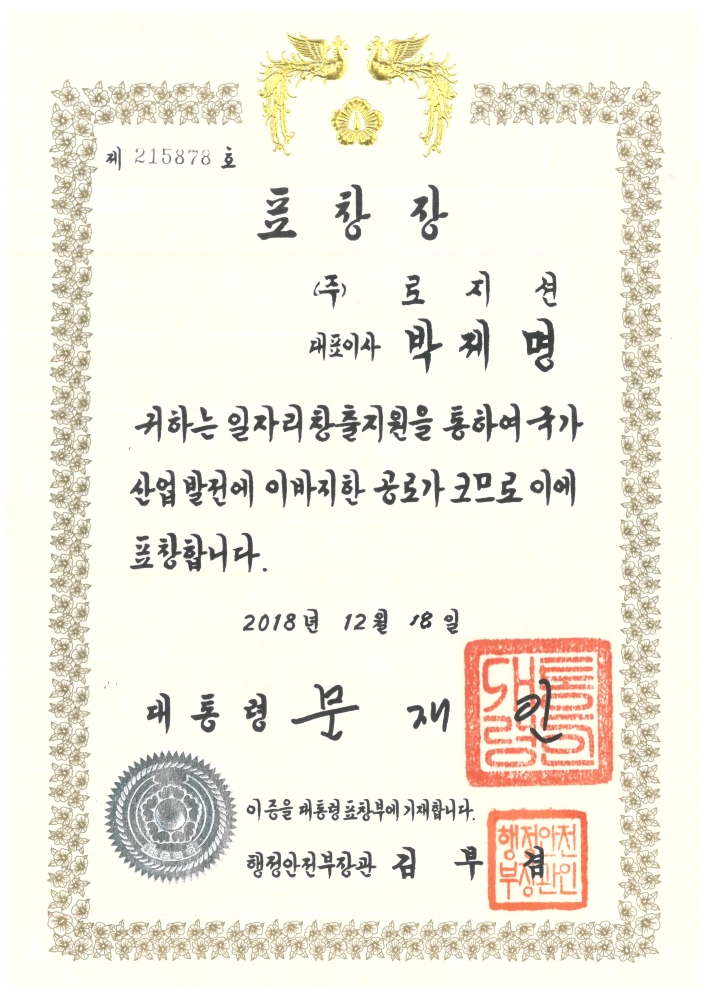 제 215878 호
표 창 장
(주) 로 지 션
대표이사 박 제 명
귀하는 일자리창출지원을 통하여 국가
산업 발전에 이바지한 공로가 크므로 이에
표창합니다.
2018년 12월 18일
대통령 문 재 인
대통령
이 증을 대통령표창부에 기재합니다.
행정안전부장관 김 부 겸
행정안전
부장관인